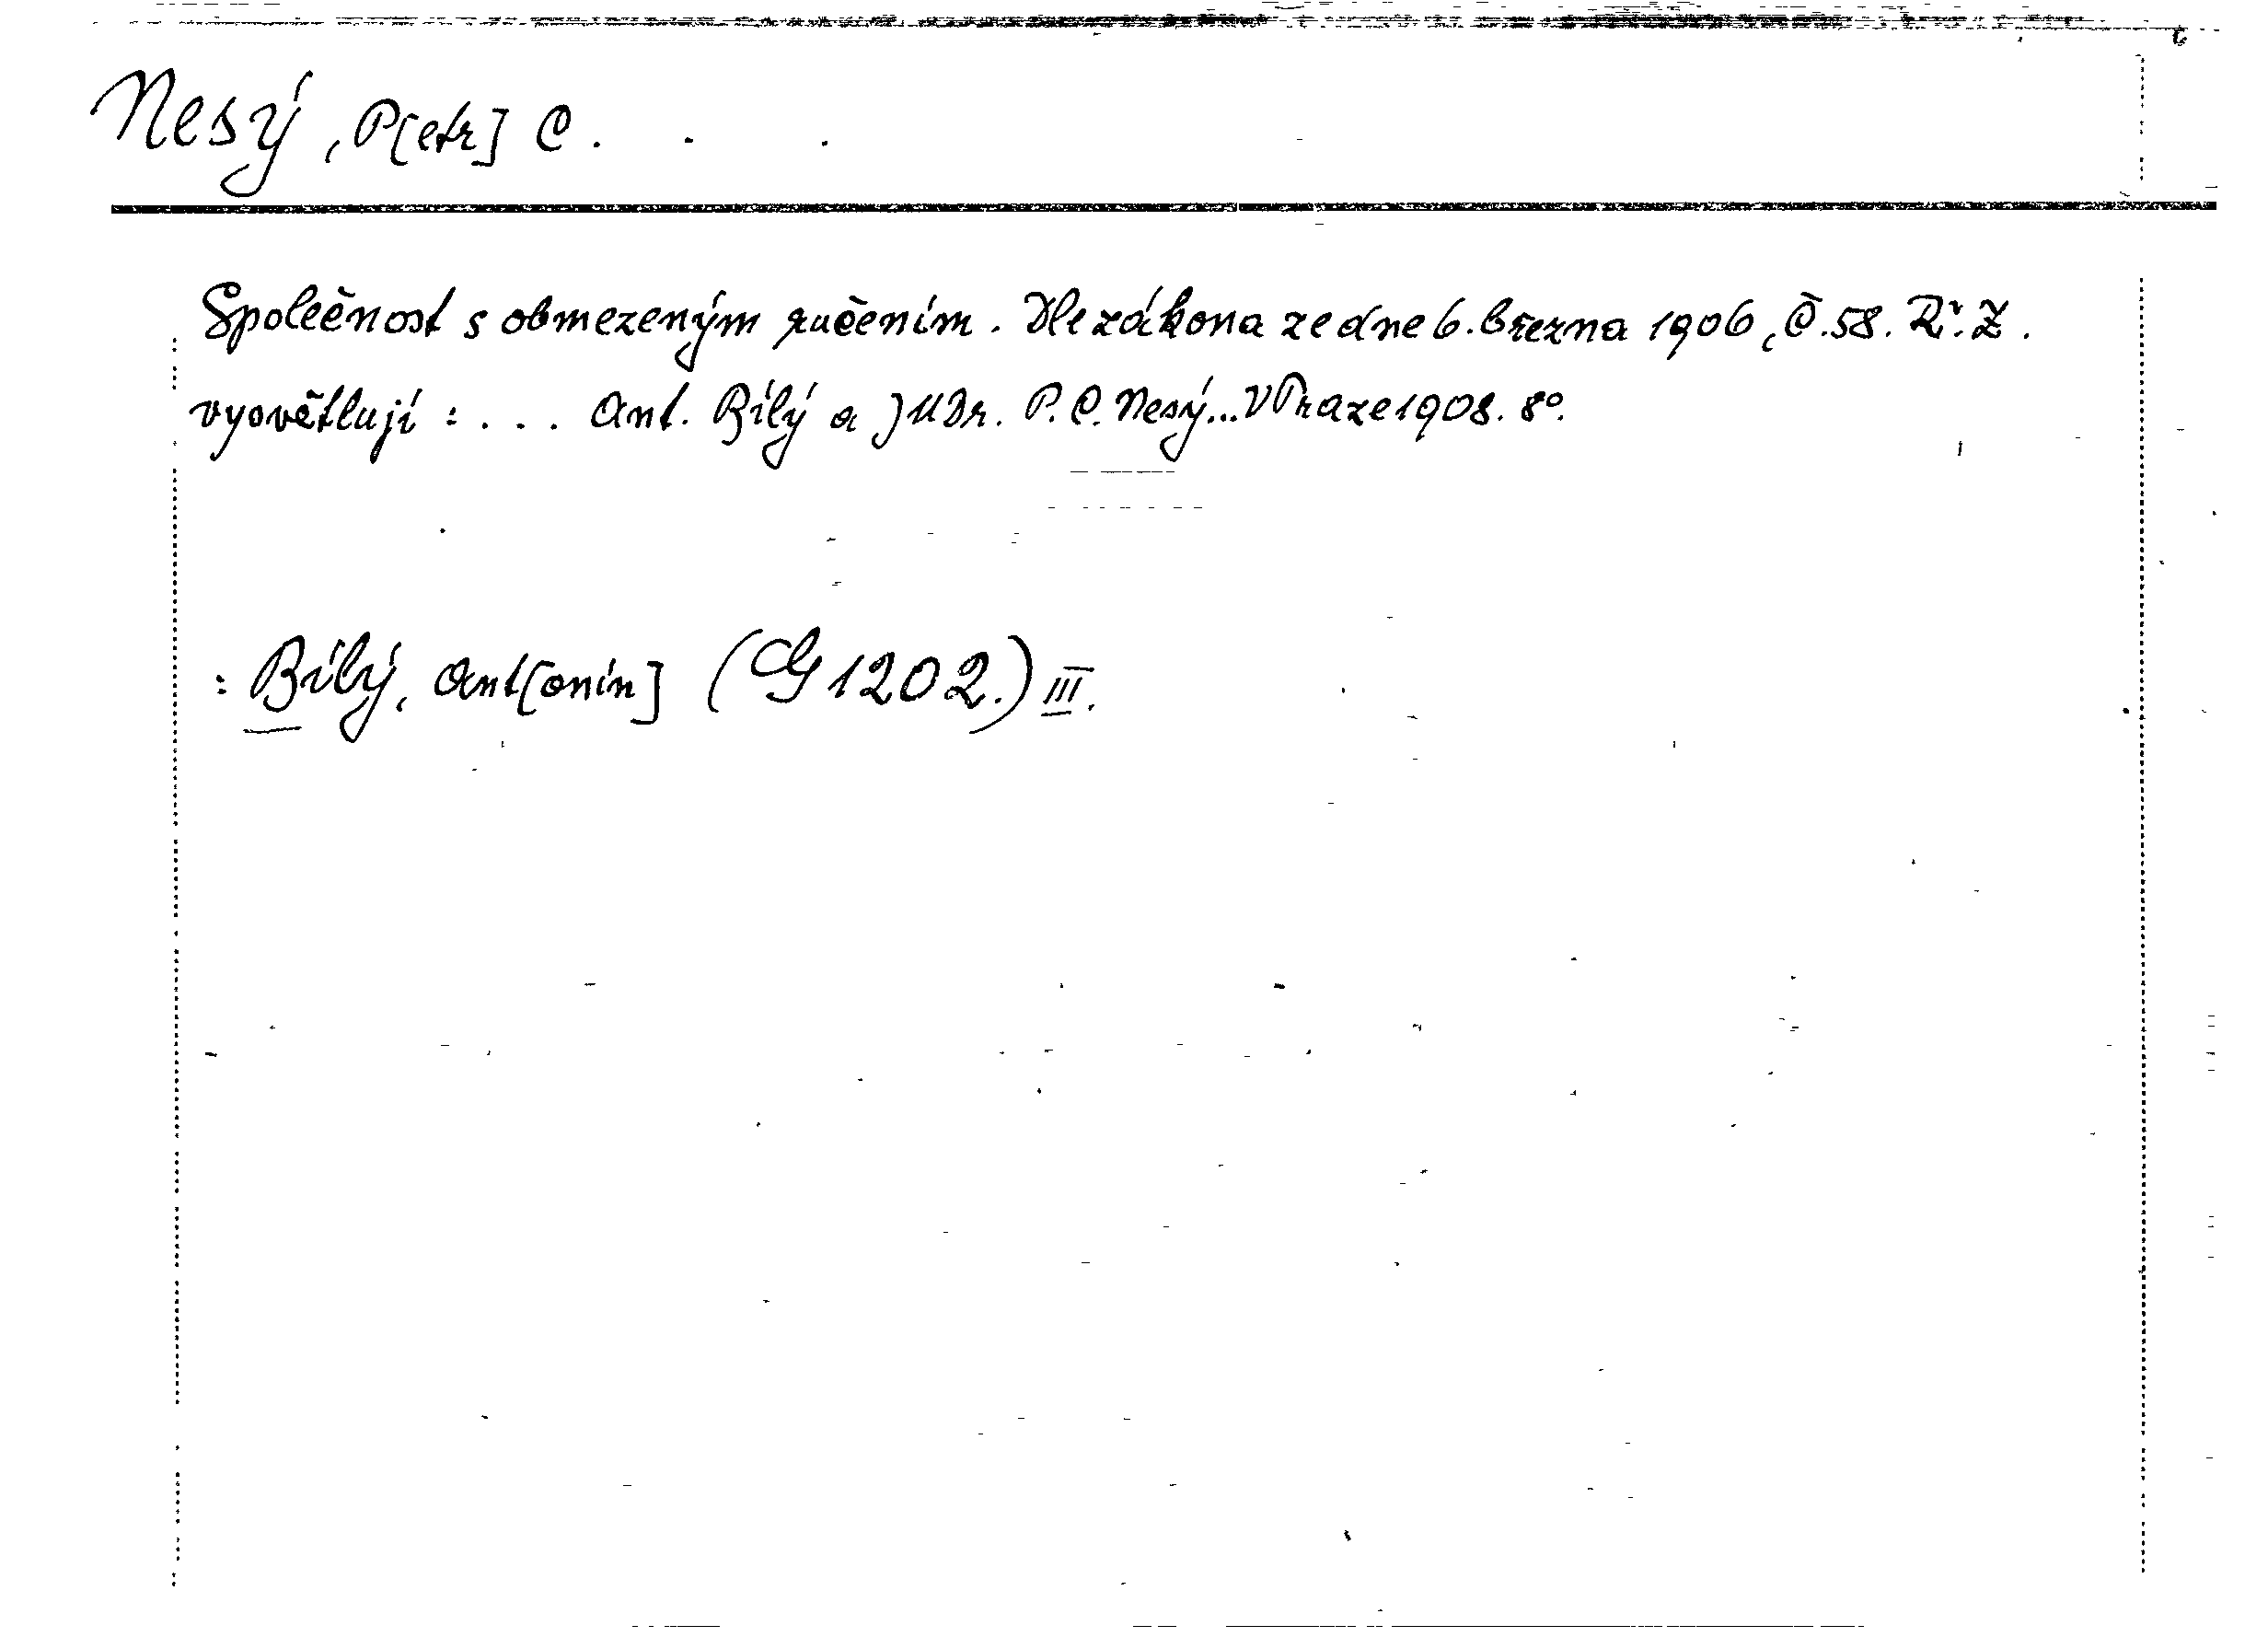 Nesý, P[etr] C.
Společnost s obmezeným ručením. Dle zákona ze dne 6. března 1906, č. 58. Ř. Z.
vysvětlují: ... Ant. Bílý a JUDr. P. C. Nesý... V Praze 1908. 8°.
: Bílý, Ant[onín] (G 1202.) III.